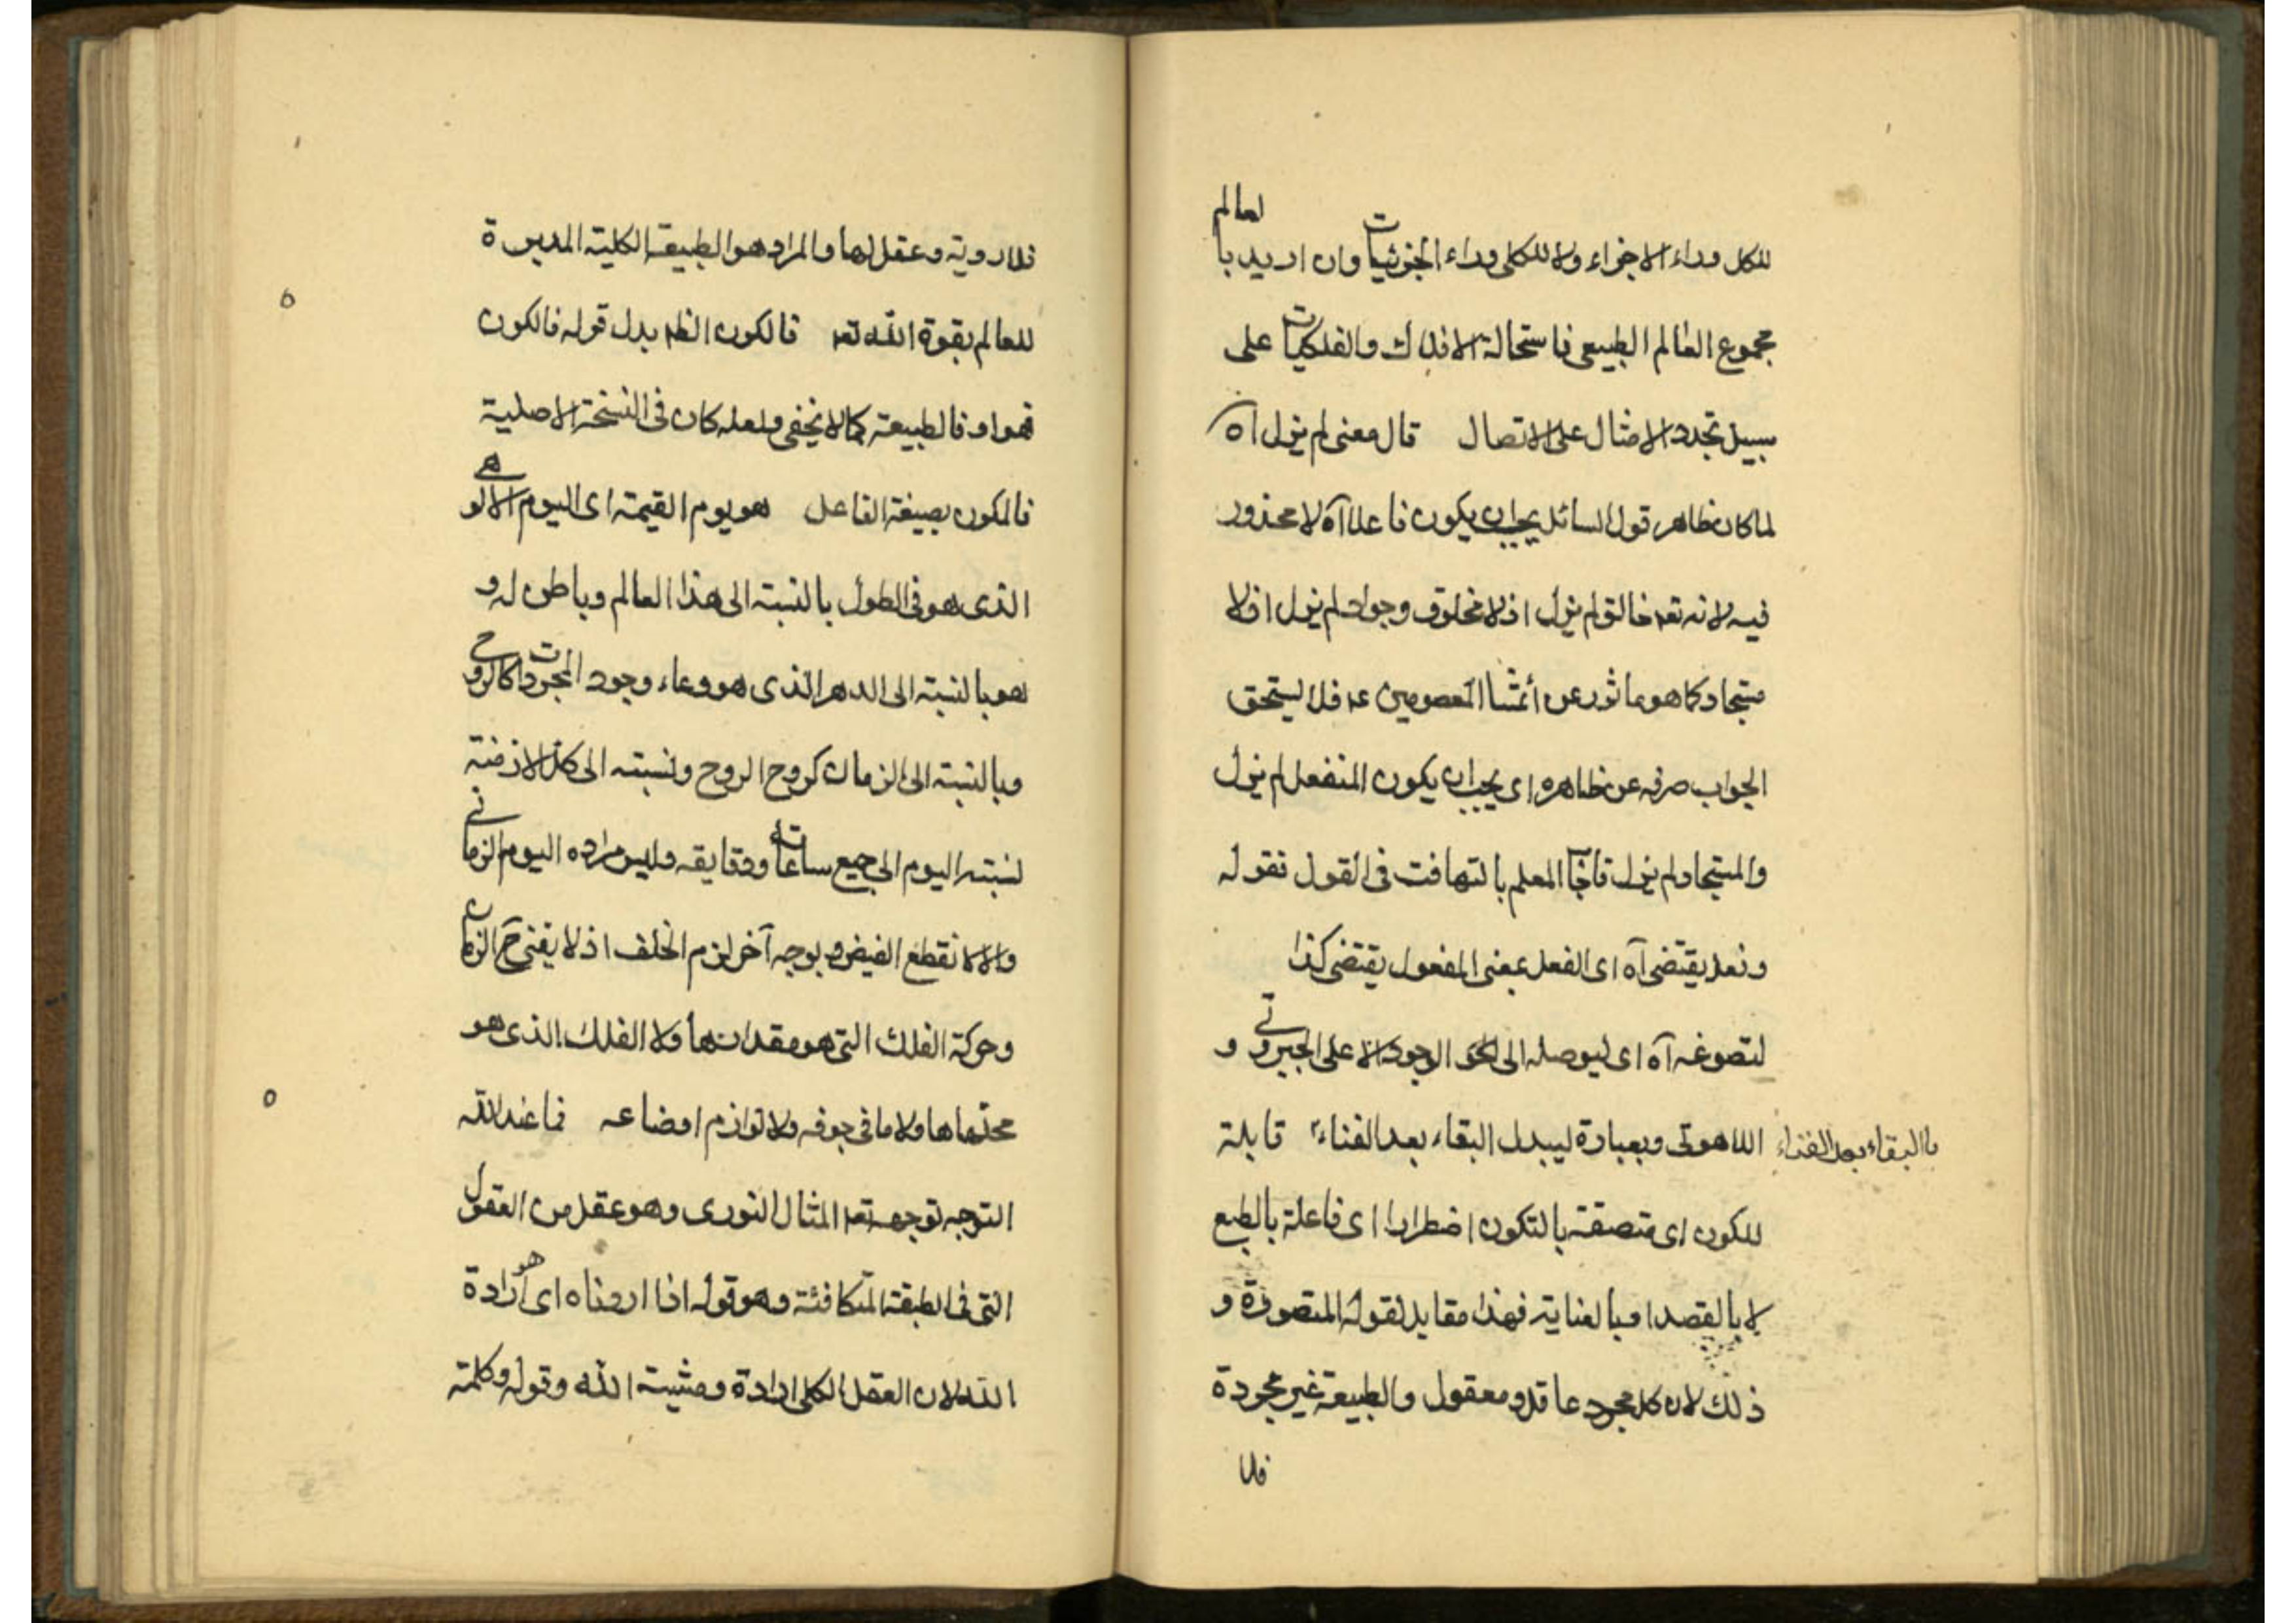 للكل وراء الاجزاء ولا للكلى وراء الجزئيات وان اريد بالعالم
مجموع العالم الطبيعى فاستحالة الافلاك والفلكيات على
سبيل تجدد الامثال على الاتصال قال معنى لم يزل اه
لما كان ظاهر قول السائل يجب ان يكون فاعلا آه لا محذور
فيه لانه تعه خالق لم يزل اذ لا مخلوق وجواد لم يزل اذ لا
مستجاد كما هو ماثور عن أئمتنا المعصومين ع فلا يستحق
الجواب صرفه عن ظاهره اى يجب ان يكون المنفعل لم يزل
والمستجاد لم يزل فاجاب المعلم بالتهافت فى القول فقوله
وفعل يقتضى آه اى الفعل بمعنى المفعول يقتضى كذا
لتصوغه آه اى ليوصله الى نحو الوجود الاعلى الجبروتى و
اللاهوتى وبعبارة ليبدل البقاء بعد الفناء قابلة
باالبقاء بعد الفناء
للكون اى متصفة بالتكون اضطرارا اى فاعلة بالطبع
لا بالقصد او بالعناية فهذا مقابل لقوله المتصورة و
ذلك لان كل مجرد عاقل ومعقول والطبيعة غير مجردة
فلا
فلا روية وعقل لها والمراد هو الطبيعة الكلية المدبرة
للعالم بقوة الله تعه فالكون الظه بدل قوله فالكون
فهو اذ فالطبيعة كما لا يخفى ولعله كان فى النسخة الاصلية
فالمكون بصيغة الفاعل هو يوم القيمة اى اليوم الالوهى
الذى هو فى الطول بالنسبة الى هذا العالم وباطن له و
هو بالنسبة الى الدهر الذى هو وعاء وجود المجردات كالروح
وبالنسبة الى الزمان كروح الروح ونسبته الى كل الازمنة
لنسبة اليوم الى جميع ساعاته ودقايقه وليس مراده اليوم الزمانى
والا لانقطع الفيض وبوجه آخر لزم الخلف اذ لا يفنى ح الزمان
وحركة الفلك التى هو مقدارها ولا الفلك الذى هو
محلها ولا ما فى جوفه ولا لوازم اوضاعه فما عند الله
التوجه توجهه تعه المثال النورى وهو عقل من العقول
التى فى الطبقة المتكافئة وهو قوله اذا اردناه اى هو ارادة
الله لان العقل الكلى ارادة ومشية الله وقوله وكلمته